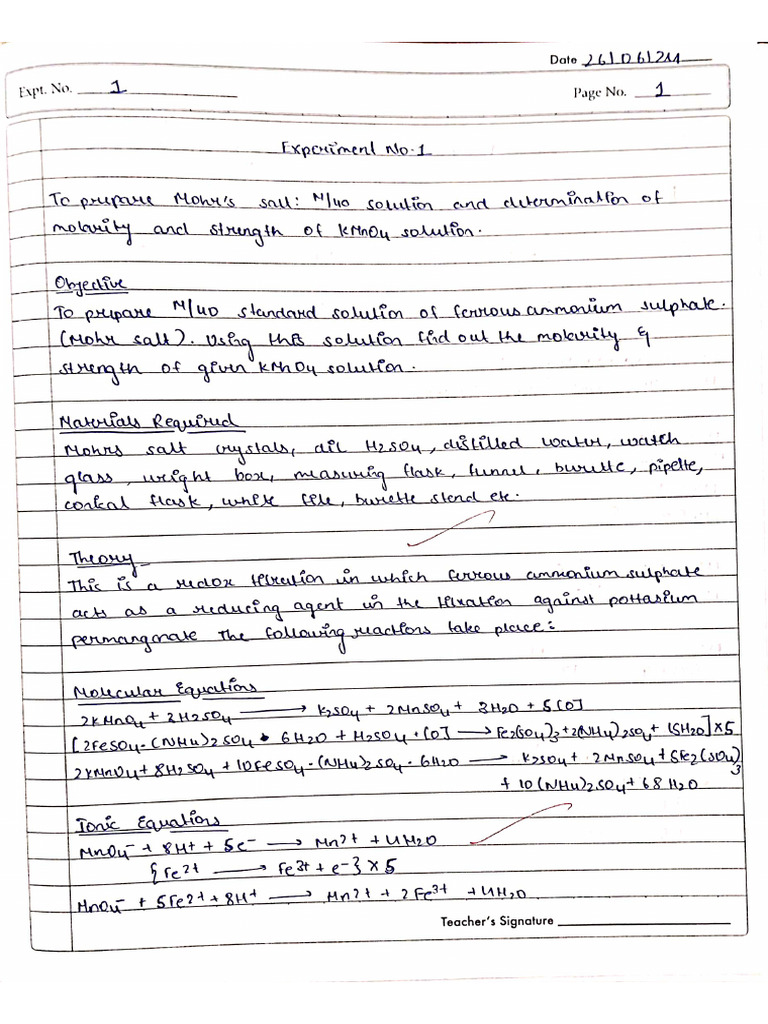 Date 26/06/24
Expt. No. 1
Page No. 1
Experiment No.1
To prepare Mohr's salt: M/40 solution and determination of
molarity and strength of KMnO4 solution.
Objective
To prepare M/40 standard solution of ferrous ammonium sulphate.
(Mohr salt). Using this solution find out the molarity &
strength of given KMnO4 solution.
Materials Required
Mohrs salt crystals, dil H2SO4, distilled water, watch
glass, weight box, measuring flask, funnel, burette, pipette,
conical flask, white tile, burette stand etc.
Theory
This is a redox titration in which ferrous ammonium sulphate
acts as a reducing agent in the titration against pottasium
permangnate The following reactions take place:
Molecular Equations
2KMnO4 + 3H2SO4 → K2SO4 + 2MnSO4 + 3H2O + 5[O]
[2FeSO4·(NH4)2SO4 • 6H2O + H2SO4 + [O] → Fe2(SO4)3 + 2(NH4)2SO4 + 15H2O] × 5
2KMnO4 + 8H2SO4 + 10FeSO4·(NH4)2SO4·6H2O → K2SO4 + 2MnSO4 + 5Fe2(SO4)3
+ 10(NH4)2SO4 + 68H2O
Ionic Equations
MnO4- + 8H+ + 5e- → Mn2+ + 4H2O
{Fe2+ → Fe3+ + e-} × 5
MnO4- + 5Fe2+ + 8H+ → Mn2+ + 2Fe3+ + 4H2O
Teacher's Signature